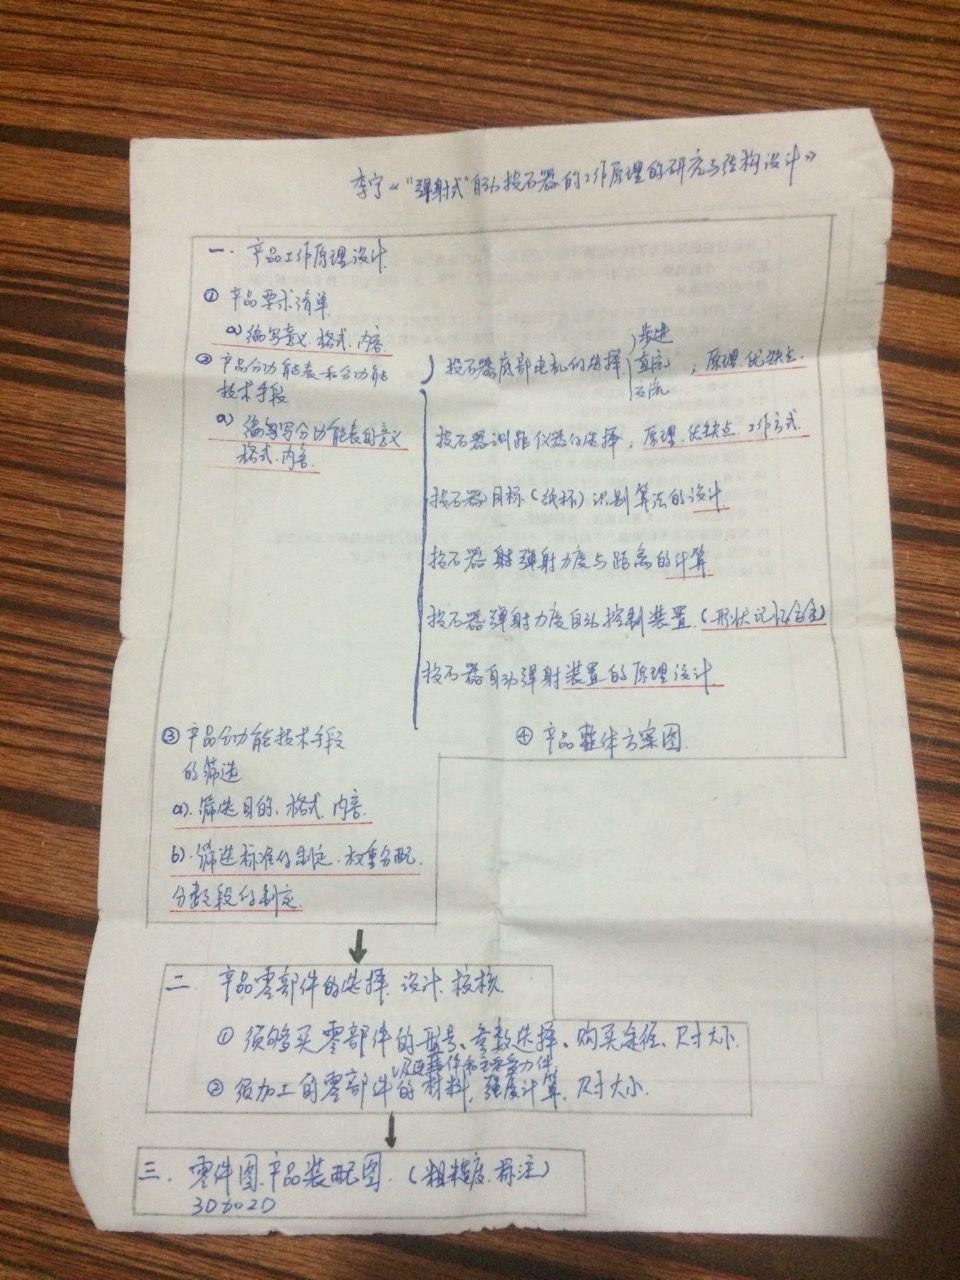 李宁《"弹射式"自动投石器的工作原理的研究与结构设计》
一. 产品工作原理设计
① 产品要求清单
a) 编写意义.格式.内容
② 产品分功能表和分功能
技术手段
a) 编写分功能表的意义
格式.内容
投石器底部电机的选择 步进 直流 交流 ，原理.优缺点.
投石器测距仪器的选择，原理.优缺点.工作方式.
投石器目标(纸杯)识别算法的设计.
投石器弹射力度与距离的计算
投石器弹射力度自动控制装置.(形状记忆合金)
投石器自动弹射装置的原理设计.
③ 产品分功能技术手段
的筛选
a). 筛选目的.格式.内容.
b). 筛选标准的制定.权重分配.
分数段的制定.
④ 产品整体方案图.
二. 产品零部件的选择.设计.校核.
① 须够买零部件的型号、参数选择、购买途径、尺寸大小.
以及连接件和主要受力件
② 须加工的零部件的材料，强度计算，尺寸大小.
三. 零件图.产品装配图.(粗糙度.标注)
3D to 2D